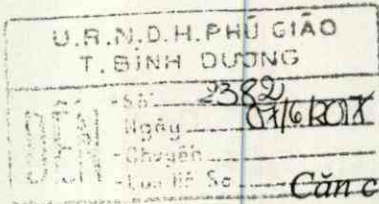 U.B.N.D.H.PHÚ GIÁO
T. BÌNH DƯƠNG
ĐẾN
-Số: 2382
Ngày 07/6/2017
-Chuyển
-Lưu Hồ Sơ
Căn c